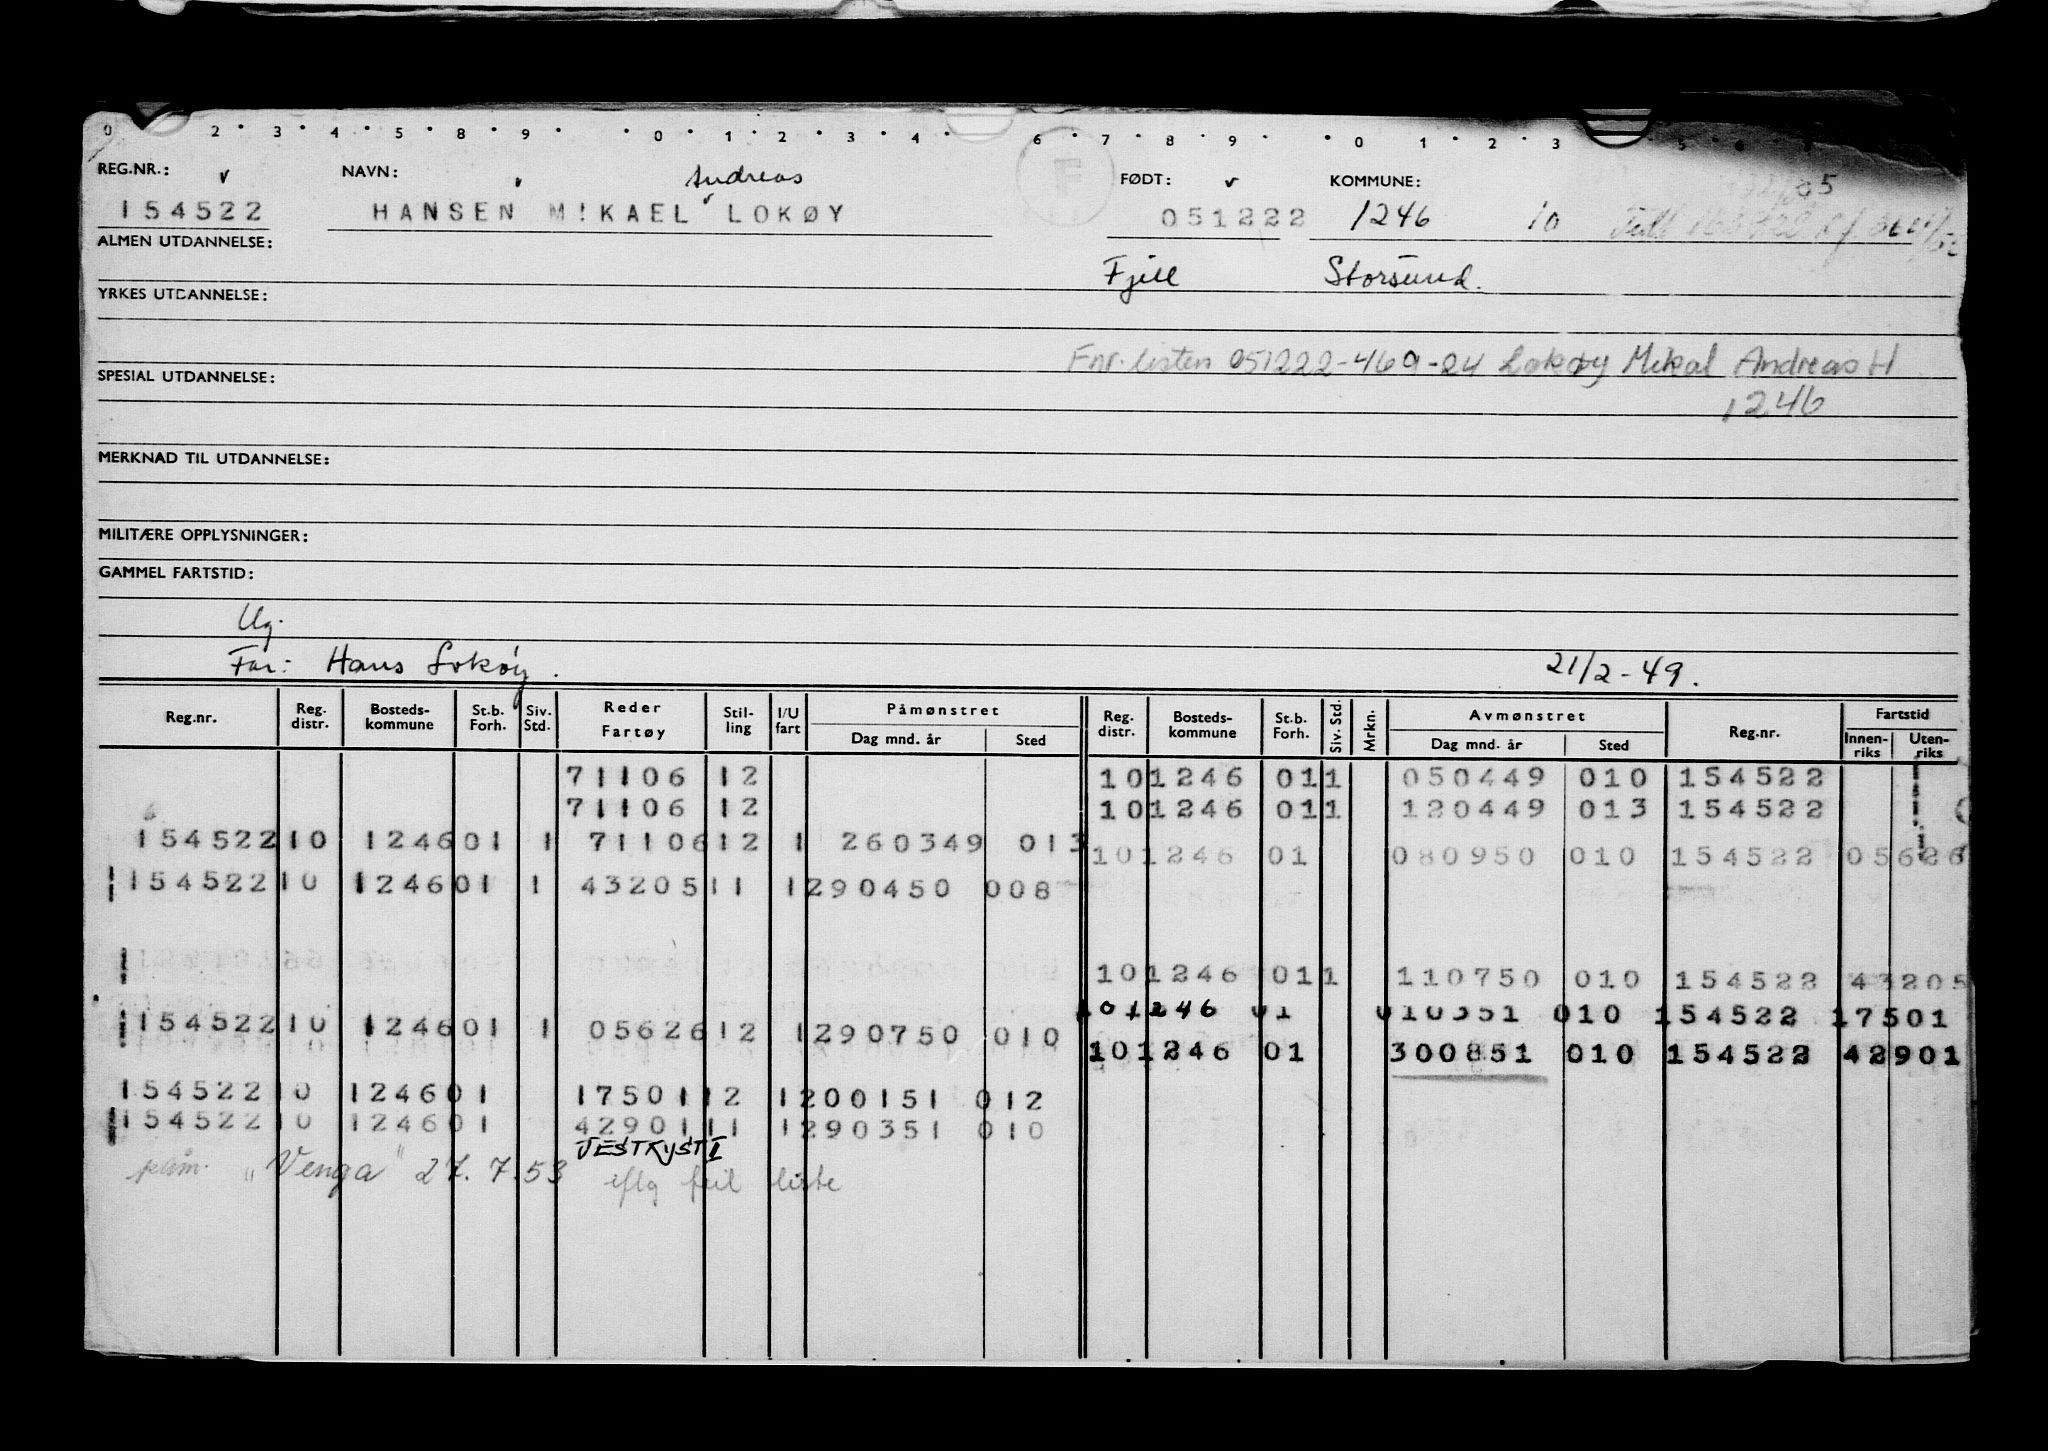 0 2 · 3 · 4 · 5 · 8 · 9 · · 0 · 1 · 2 · 3 · 4 · 6 · 7 · 8 · 9 · · 0 1 2 3 5
REG.NR.: NAVN: Andreas FØDT: KOMMUNE: 05
154522 HANSEN MIKAEL LOKØY 051222 1246 10
ALMEN UTDANNELSE:
Fjell Storsund.
YRKES UTDANNELSE:
Fnr. listen 051222-469-24 Lokøy Mikal Andreas H
SPESIAL UTDANNELSE:
1246
MERKNAD TIL UTDANNELSE:
MILITÆRE OPPLYSNINGER:
GAMMEL FARTSTID:
Ug.
Far: Hans Lokøy. 21/2-49.
Reg.nr. Reg. distr. Bosteds-kommune St.b. Forh. Siv. Std. Reder Fartøy Stil-ling I/U fart Påmønstret Dag mnd. år Sted Reg. distr. Bosteds-kommune St.b. Forh. Siv. Std. Mrkn. Avmønstret Dag mnd. år Sted Reg.nr. Fartstid Innen-riks Uten-riks
71106 12 10 1246 01 1 050449 010 154522
71106 12 10 1246 01 1 120449 013 154522
154522 10 1246 01 1 71106 12 1 260349 013
10 1246 01 080950 010 154522 05626
154522 10 1246 01 1 43205 11 1 290450 008
10 1246 01 1 110750 010 154522 43205
10 1246 01 010351 010 154522 17501
154522 10 1246 01 1 05626 12 1 290750 010
10 1246 01 300851 010 154522 42901
154522 10 1246 01 17501 12 1 200151 012
154522 10 1246 01 42901 11 1 290351 010
VESTKYST I
påm. "Venga" 27.7.53 iflg feil liste